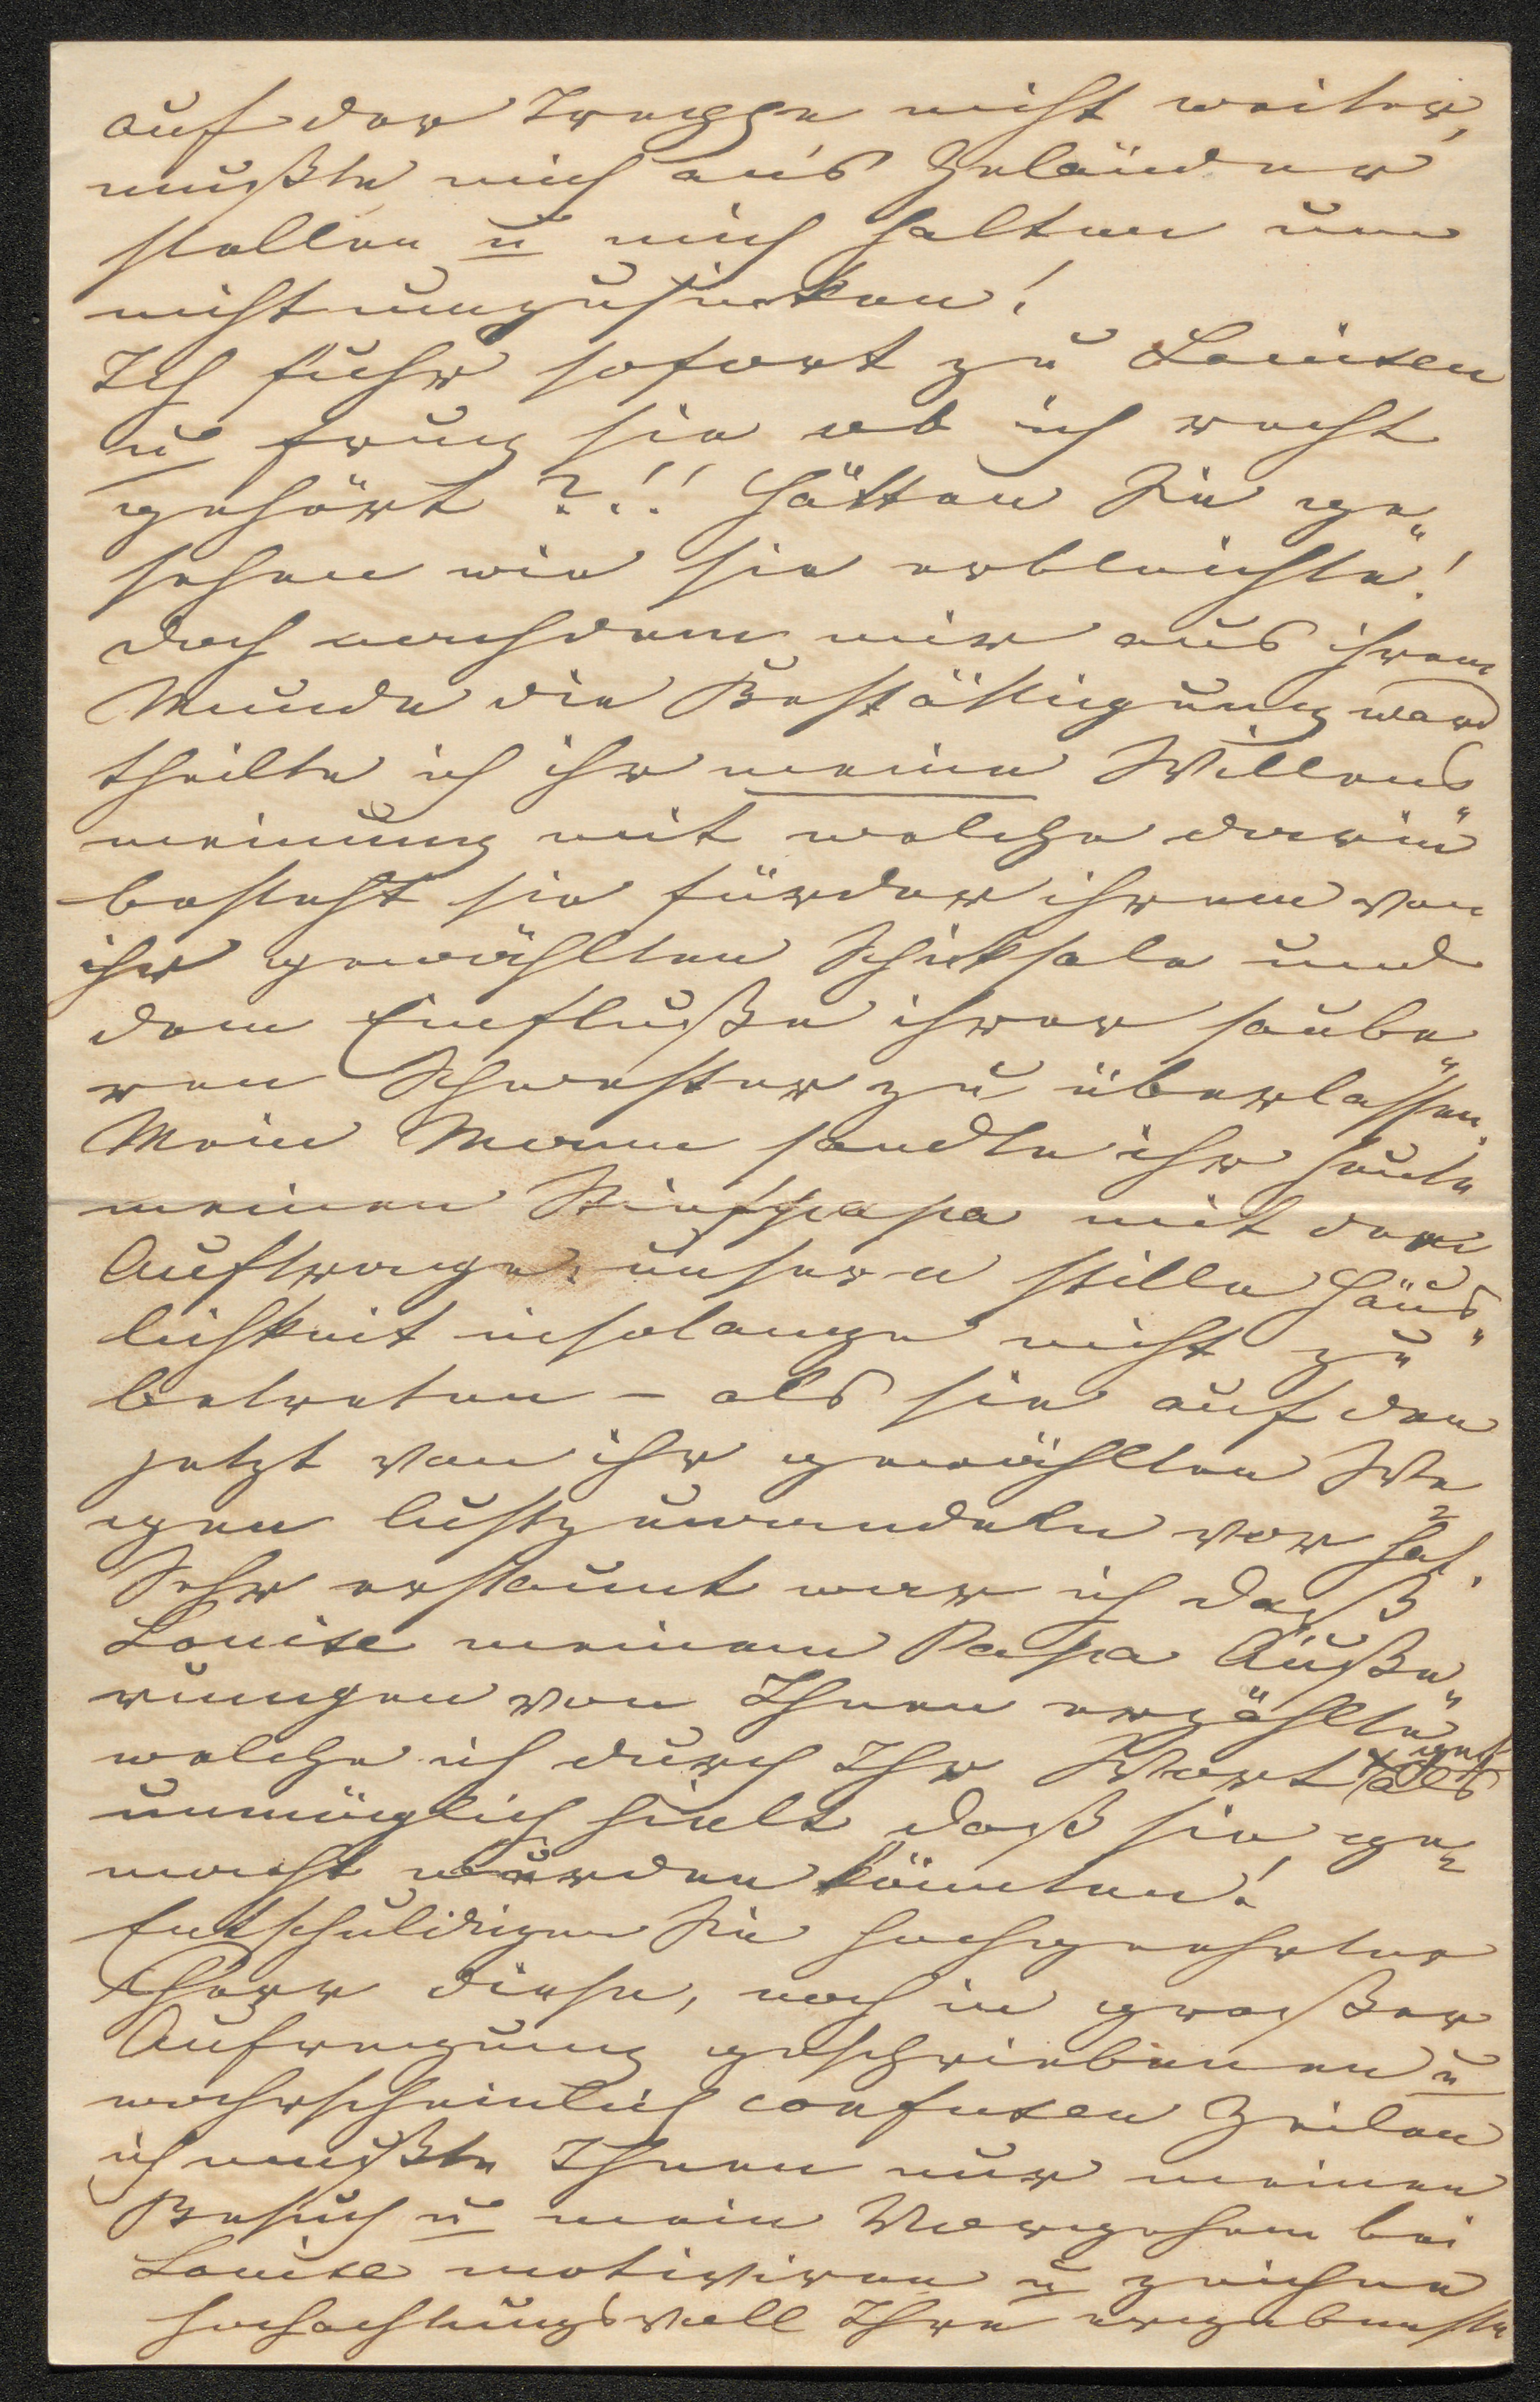 auf der Treppe nicht weiter,
mußte mich an's Geländer
stellen u mich halten um
nicht umzusinken!
Ich fuhr sofort zu Louisen
u frug sie ob ich recht
gehört ?!! Hätten Sie ge„
sehen wie sie erbleichte!
doch nachdem mir aus ihrem
Munde die Bestättigung ward
theilte ich ihr meine Willens„
meinung mit welche darin
besteht sie fürder ihrem von
ihr gewählten Schiksale und
dem Einfluße ihrer saube„
ren Schwester zu überlassen.
Mein Mann sandte ihr heute
meinen Stiefpapa mit dem
Auftrage, unsere stille Häus„
lichkeit insolange nicht zu
betreten – als sie auf den
jetzt von ihr gewählten We„
gen lustzuwandeln vor hat.
Sehr erstaunt war ich daß
Louise meinem Papa Äuße„
rungen von Ihnen erzählte
welche ich durch Ihr Wort als
unmöglich hielt daß sie ge„
macht würden könnten!
Entschuldigen Sie hochgeehrter
Herr diese, noch in großer
Aufregung geschriebenen u
wahrscheinlich confusen Zeilen
ich mußte Ihnen nur meinen
Besuch u mein Vorgehen bei
Louise motiviren u zeichne
hochachtungsvoll Ihre ergebenste